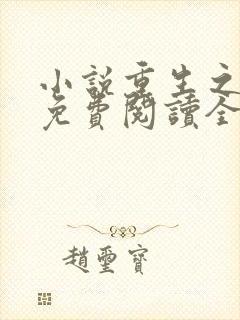 小説重生之
免費閱讀全
趙璽寶